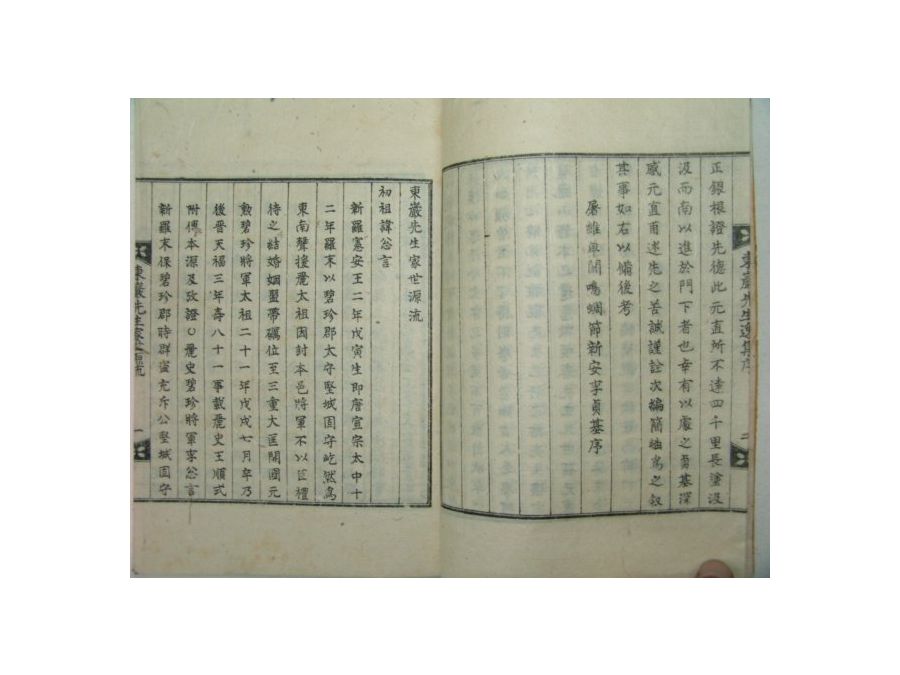 東巖先生逸集序
二
正銀根證先德此元直所不達四千里長塗沒
汲西南以進於門下者也幸有以處之貞基深
感元直甫述先之苦誠謹詮次編簡岫爲之叙
其事如右以備後考
屠維 閹 鳴蜩節新安李貞基序
東巖先生家世源流
初祖諱怱言
新羅憲安王二年戊寅生即唐宣宗太中十
二年羅末以碧珍郡太守堅城固守屹然爲
東南聲援麗太祖因封本邑將軍不以臣禮
待之結婚姻盟帶礪位至三重大匡開國元
勲碧珍將軍太祖二十一年戊戌七月卒乃
後晋天福三年壽八十一事載麗史王順式
附傳本源及攷證○麗史碧珍將軍李怱言
新羅末保碧珍郡時群盜充斥公堅城固守
東巖先生家世源流
一